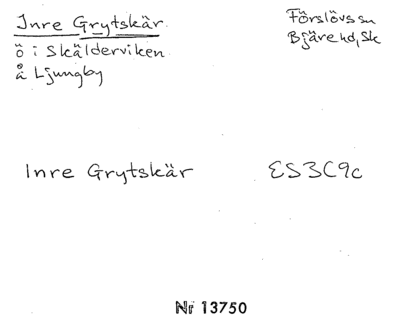 Inre Grytskär
ö i Skälderviken
å Ljungby
Förslövs sn
Bjäre hd, Sk
Inre Grytskär
ES3C9c
Nr 13750